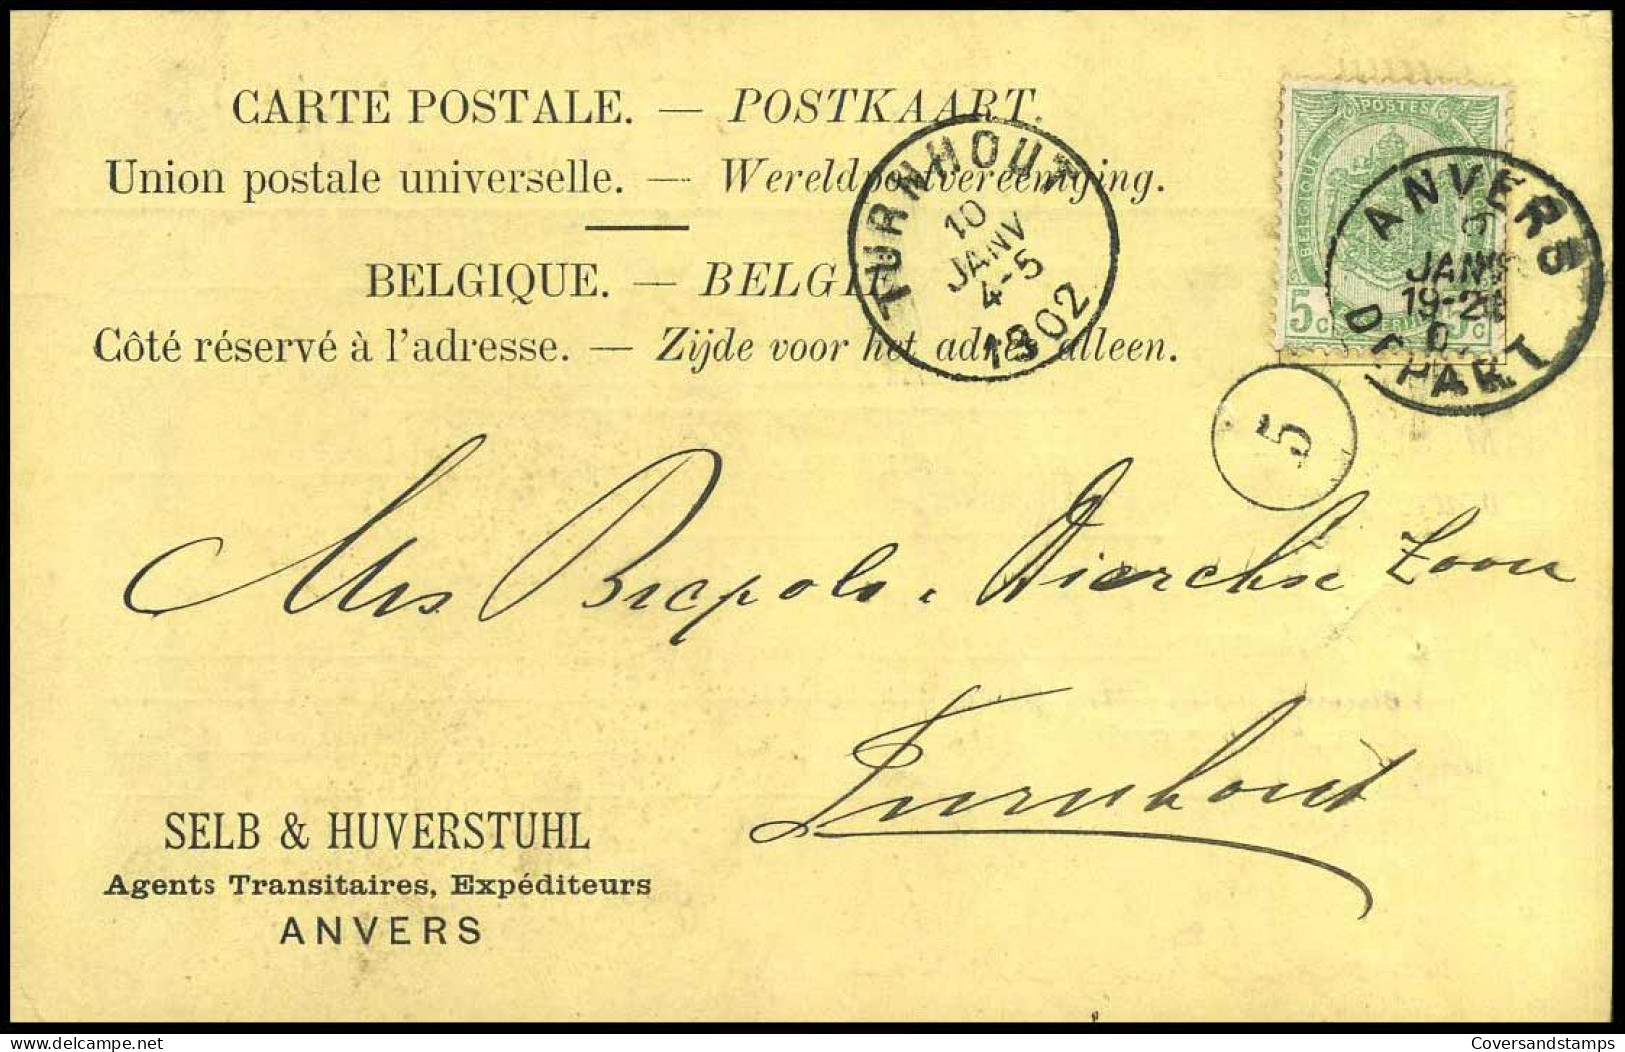 CARTE POSTALE. — POSTKAART.
Union postale universelle. — Wereldpostvereeniging.
BELGIQUE. — BELGIË
Côté réservé à l'adresse. — Zijde voor het adres alleen.
POSTES
BELGIQUE
5 C 5 C
ANVERS
6
JANV
DEPART
TURNHOUT
10
JANV
4-5
1902
5
Mrs Brepols & Dierckx Zoon
Turnhout
SELB & HUVERSTUHL
Agents Transitaires, Expéditeurs
ANVERS
delcampe.net
Coversandstamps